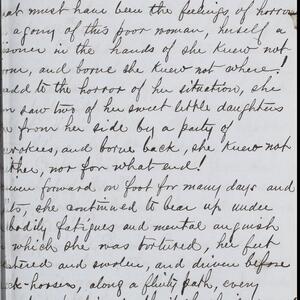 at must have been the feelings of horror
agony of this poor woman, herself a
isoner in the hands of she knew not
om, and borne she knew not where!
add to the horror of her situation, she
n saw two of her sweet little daughters
n from her side by a party of
erokees, and borne back, she knew not
ither, nor for what end!
iven forward on foot for many days and
ts, she continued to bear up under
bodily fatigues and mental anguish
which she was tortured, her feet
stered and swolen, and driven before
ck-horses, along a flinty path, every